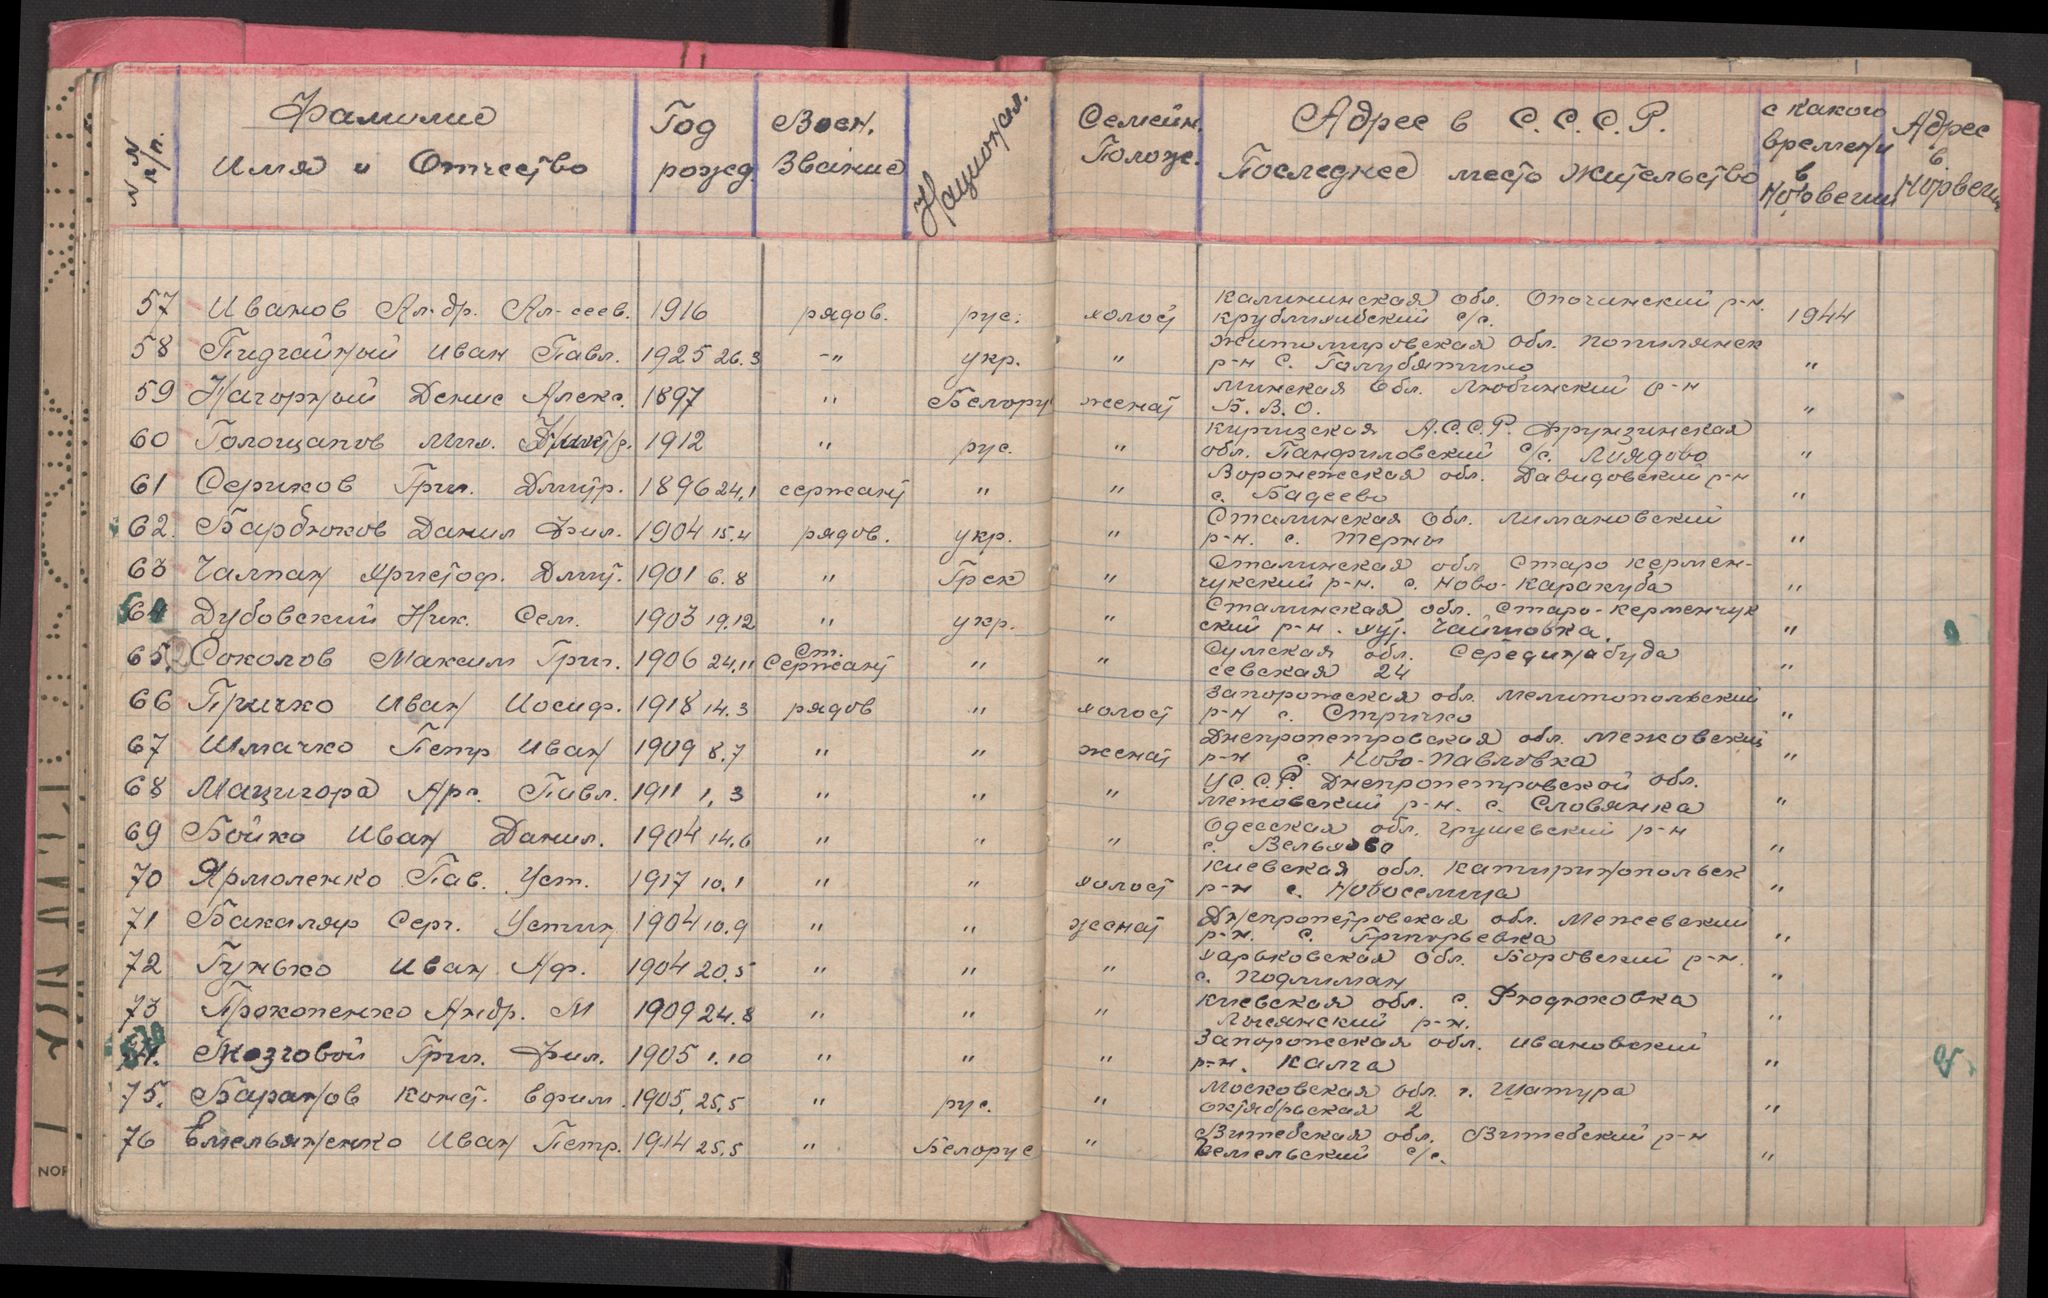 N N п/п. Фамилие Имя и Отчество Год рожд Воен. Звание Национал. Семейн. Полож. Адрес в С.С.С.Р. Последнее место жительство с какого времени в Норвегии Адрес в Норвегии
57 Иванов Ал-др. Ал-сеев. 1916 рядов. рус. холост Калининская обл. Опочинский р-н. 1944
с/с.
58 Пидгайный Иван Павл. 1925 26.3 -" укр. " Житомировская обл. Попилянск "
р-н С. Голубятино
59 Нагорный Денис Алекс. 1897 " Белору женат Минская обл. Любинский р-н "
Б.В.О.
60 Голощапов Мих. 1912 " рус. " Киргизская А.С.С.Р. Фрунзинская "
обл. Панфиловский с/с. Лиядово
61 Сериков Гри. Дмитр. 1896 24.1 сержант " " Воронежская обл. Давидовский р-н "
с. Бадеево
62. Барбюков Данил Фил. 1904 15.4 рядов. укр. " Сталинская обл. Лимановский "
р-н. с. Терны
63 Чалпан Христоф. Дмит. 1901 6.8 " Грек " Сталинская обл Старо Кермен-
чукский р-н. с. Ново-Каракуба "
64 Дубовский Ник. Сем. 1903 19.12 " укр. " Сталинская обл. Старо-Керменчук
ский р-н. хут. Чайповка. "
65 Соколов Максим Григ. 1906 24.11 Ст. Сержант " " Сумская обл. Серединабуда
севская 24 "
66 Гричко Иван Иосиф. 1918 14.3 рядов " холост Запорожская обл. Мелитопольский
р-н с. Стричко "
67 Шмачко Петр Иван 1909 8.7 " " женат Днепропетровская обл. Межовский
р-н с. Ново-Павловка "
68 Мацигора Арс. Павл. 1911 1.3 " " " У.С.С.Р. Днепропетровской обл.
Межовский р-н. с. Словянка "
69 Бойко Иван Данил. 1904 14.6 " " " Одесская обл. Грушевский р-н
с. "
70 Ярмоленко Пав. Уст. 1917 10.1 " " холост Киевская обл. Катиринопольск
р-н с. Новоселица "
71 Бакаляр Серг. Устин 1904 10.9 " " женат Днепропетровская обл. Межевский
р-н. с. Григорьевка "
72 Гунько Иван Аф. 1904 20.5 " " " Харьковская обл. Боровский р-н.
с. Подлиман "
73 Прокопенко Андр. М 1909 24.8 " " " Киевская обл. с. Фюдюковка
Лысянский р-н. "
74. Мозговой Гри. Фил. 1905 1.10 " " " Запорожская обл. Ивановский
р-н. Калга "
75. Баранов Конст. Ефим. 1905. 25.5 " рус. " Московская обл. г. Шатура
октябрьская 2 "
76 Емельяненко Иван Петр. 1914 25.5 " Белорус " Витебская обл. Витебский р-н
с/с. "
NOR